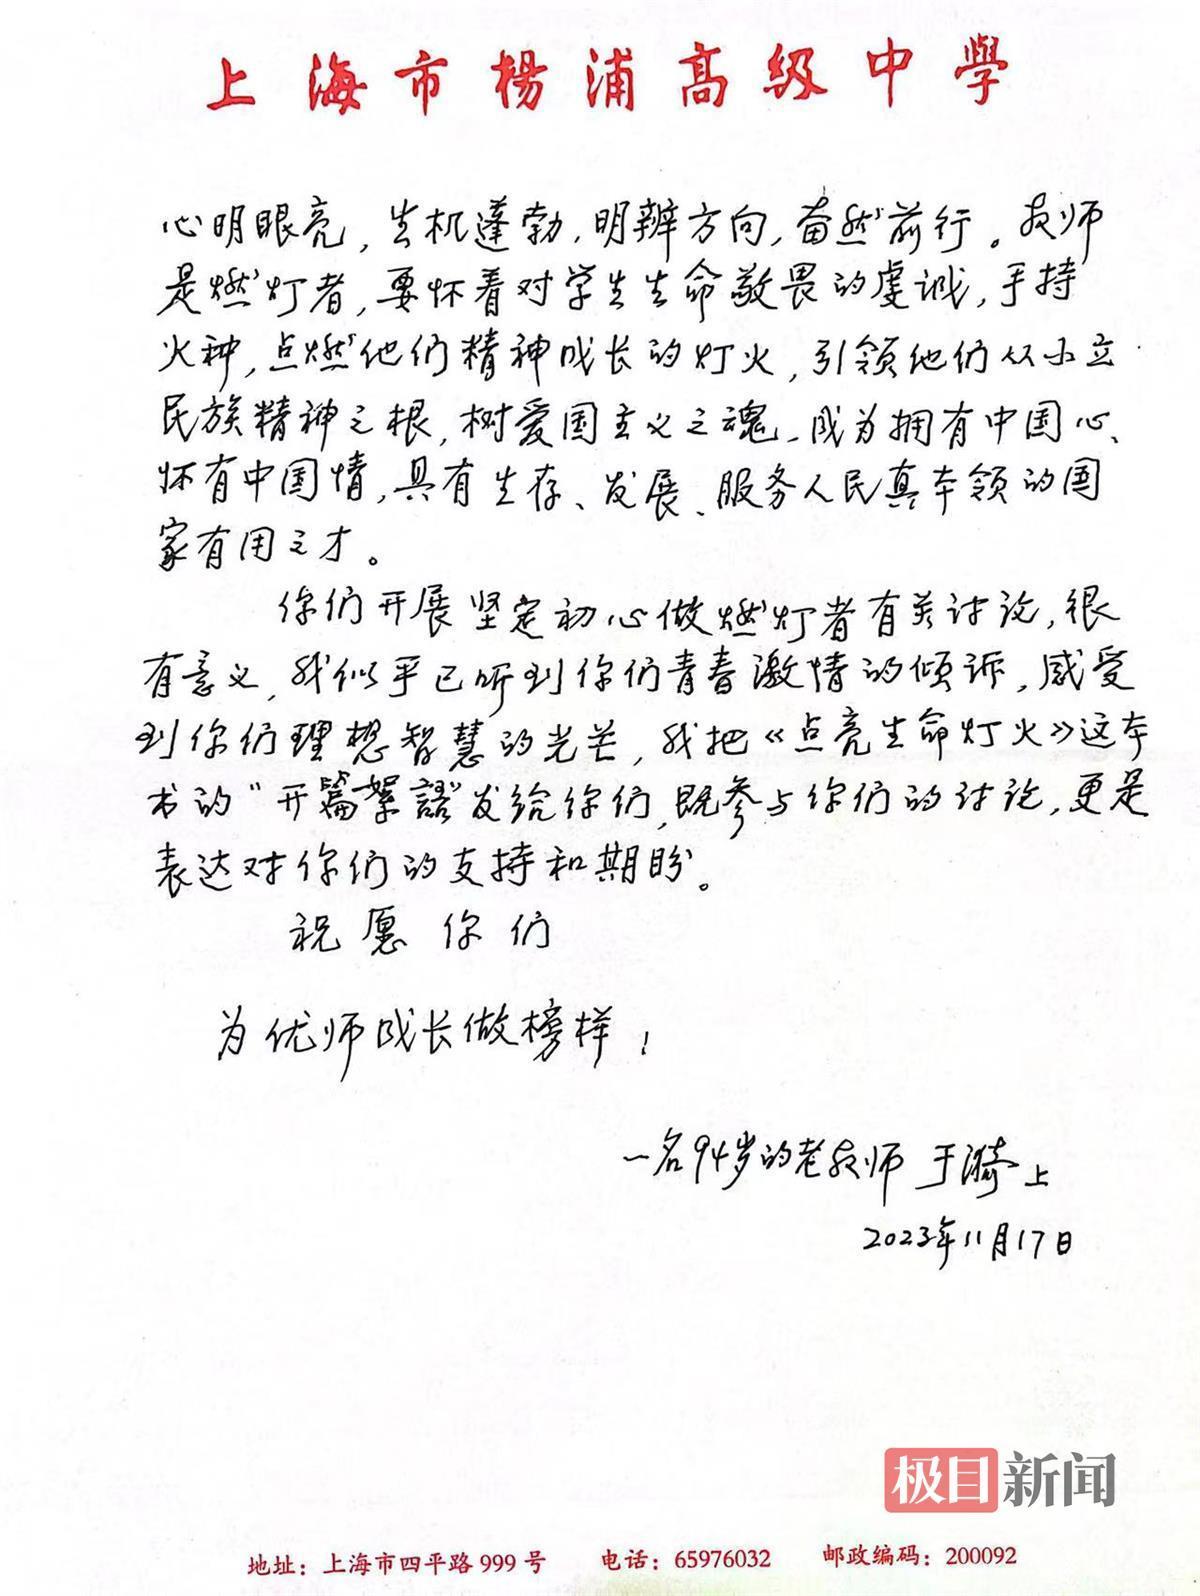 上海市楊浦高級中學
心明眼亮，生机蓬勃，明辨方向，奋然前行。教师
是燃灯者，要怀着对学生生命敬畏的虔诚，手持
火种，点燃他们精神成长的灯火，引领他们从小立
民族精神之根，树爱国主义之魂，成为拥有中国心、
怀有中国情，具有生存、发展、服务人民真本领的国
家有用之才。
你们开展坚定初心做燃灯者有关讨论，很
有意义，我似乎已听到你们青春激情的倾诉，感受
到你们理想智慧的光芒，我把《点亮生命灯火》这本
书的“开篇絮語”发给你们，既参与你们的讨论，更是
表达对你们的支持和期盼。
祝愿你们
为优师成长做榜样！
一名94岁的老教师 于漪上
2023年11月17日
极目新闻
地址：上海市四平路999号 电话：65976032 邮政编码：200092